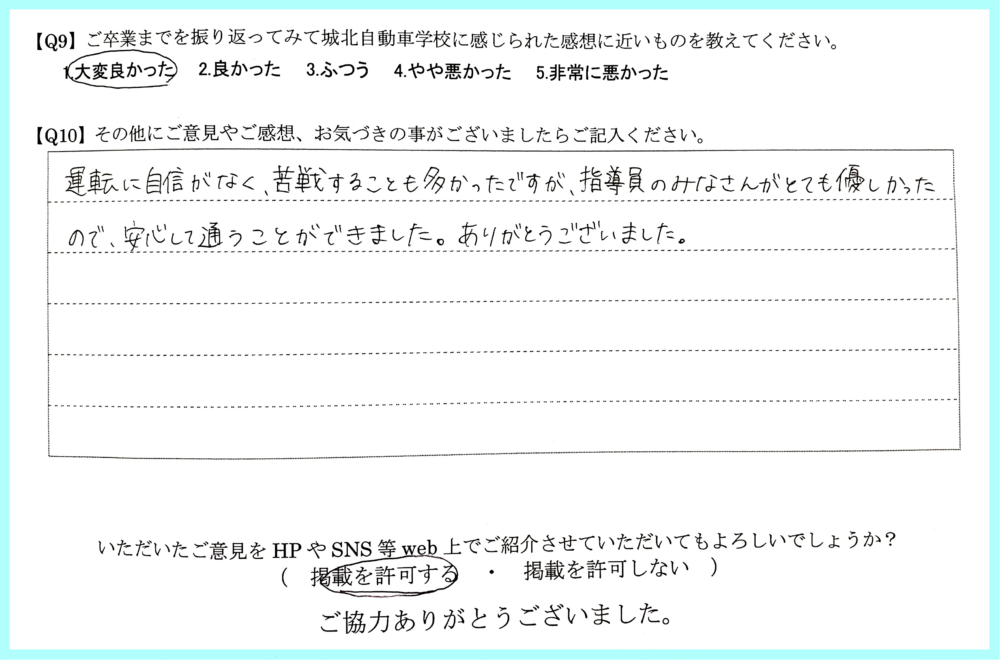 【Q9】ご卒業までを振り返ってみて城北自動車学校に感じられた感想に近いものを教えてください。
1.大変良かった 2.良かった 3.ふつう 4.やや悪かった 5.非常に悪かった
【Q10】その他にご意見やご感想、お気づきの事がございましたらご記入ください。
運転に自信がなく、苦戦することも多かったですが、指導員のみなさんがとても優しかった
ので、安心して通うことができました。ありがとうございました。
いただいたご意見をHPやSNS等web上でご紹介させていただいてもよろしいでしょうか？
( 掲載を許可する ・ 掲載を許可しない )
ご協力ありがとうございました。